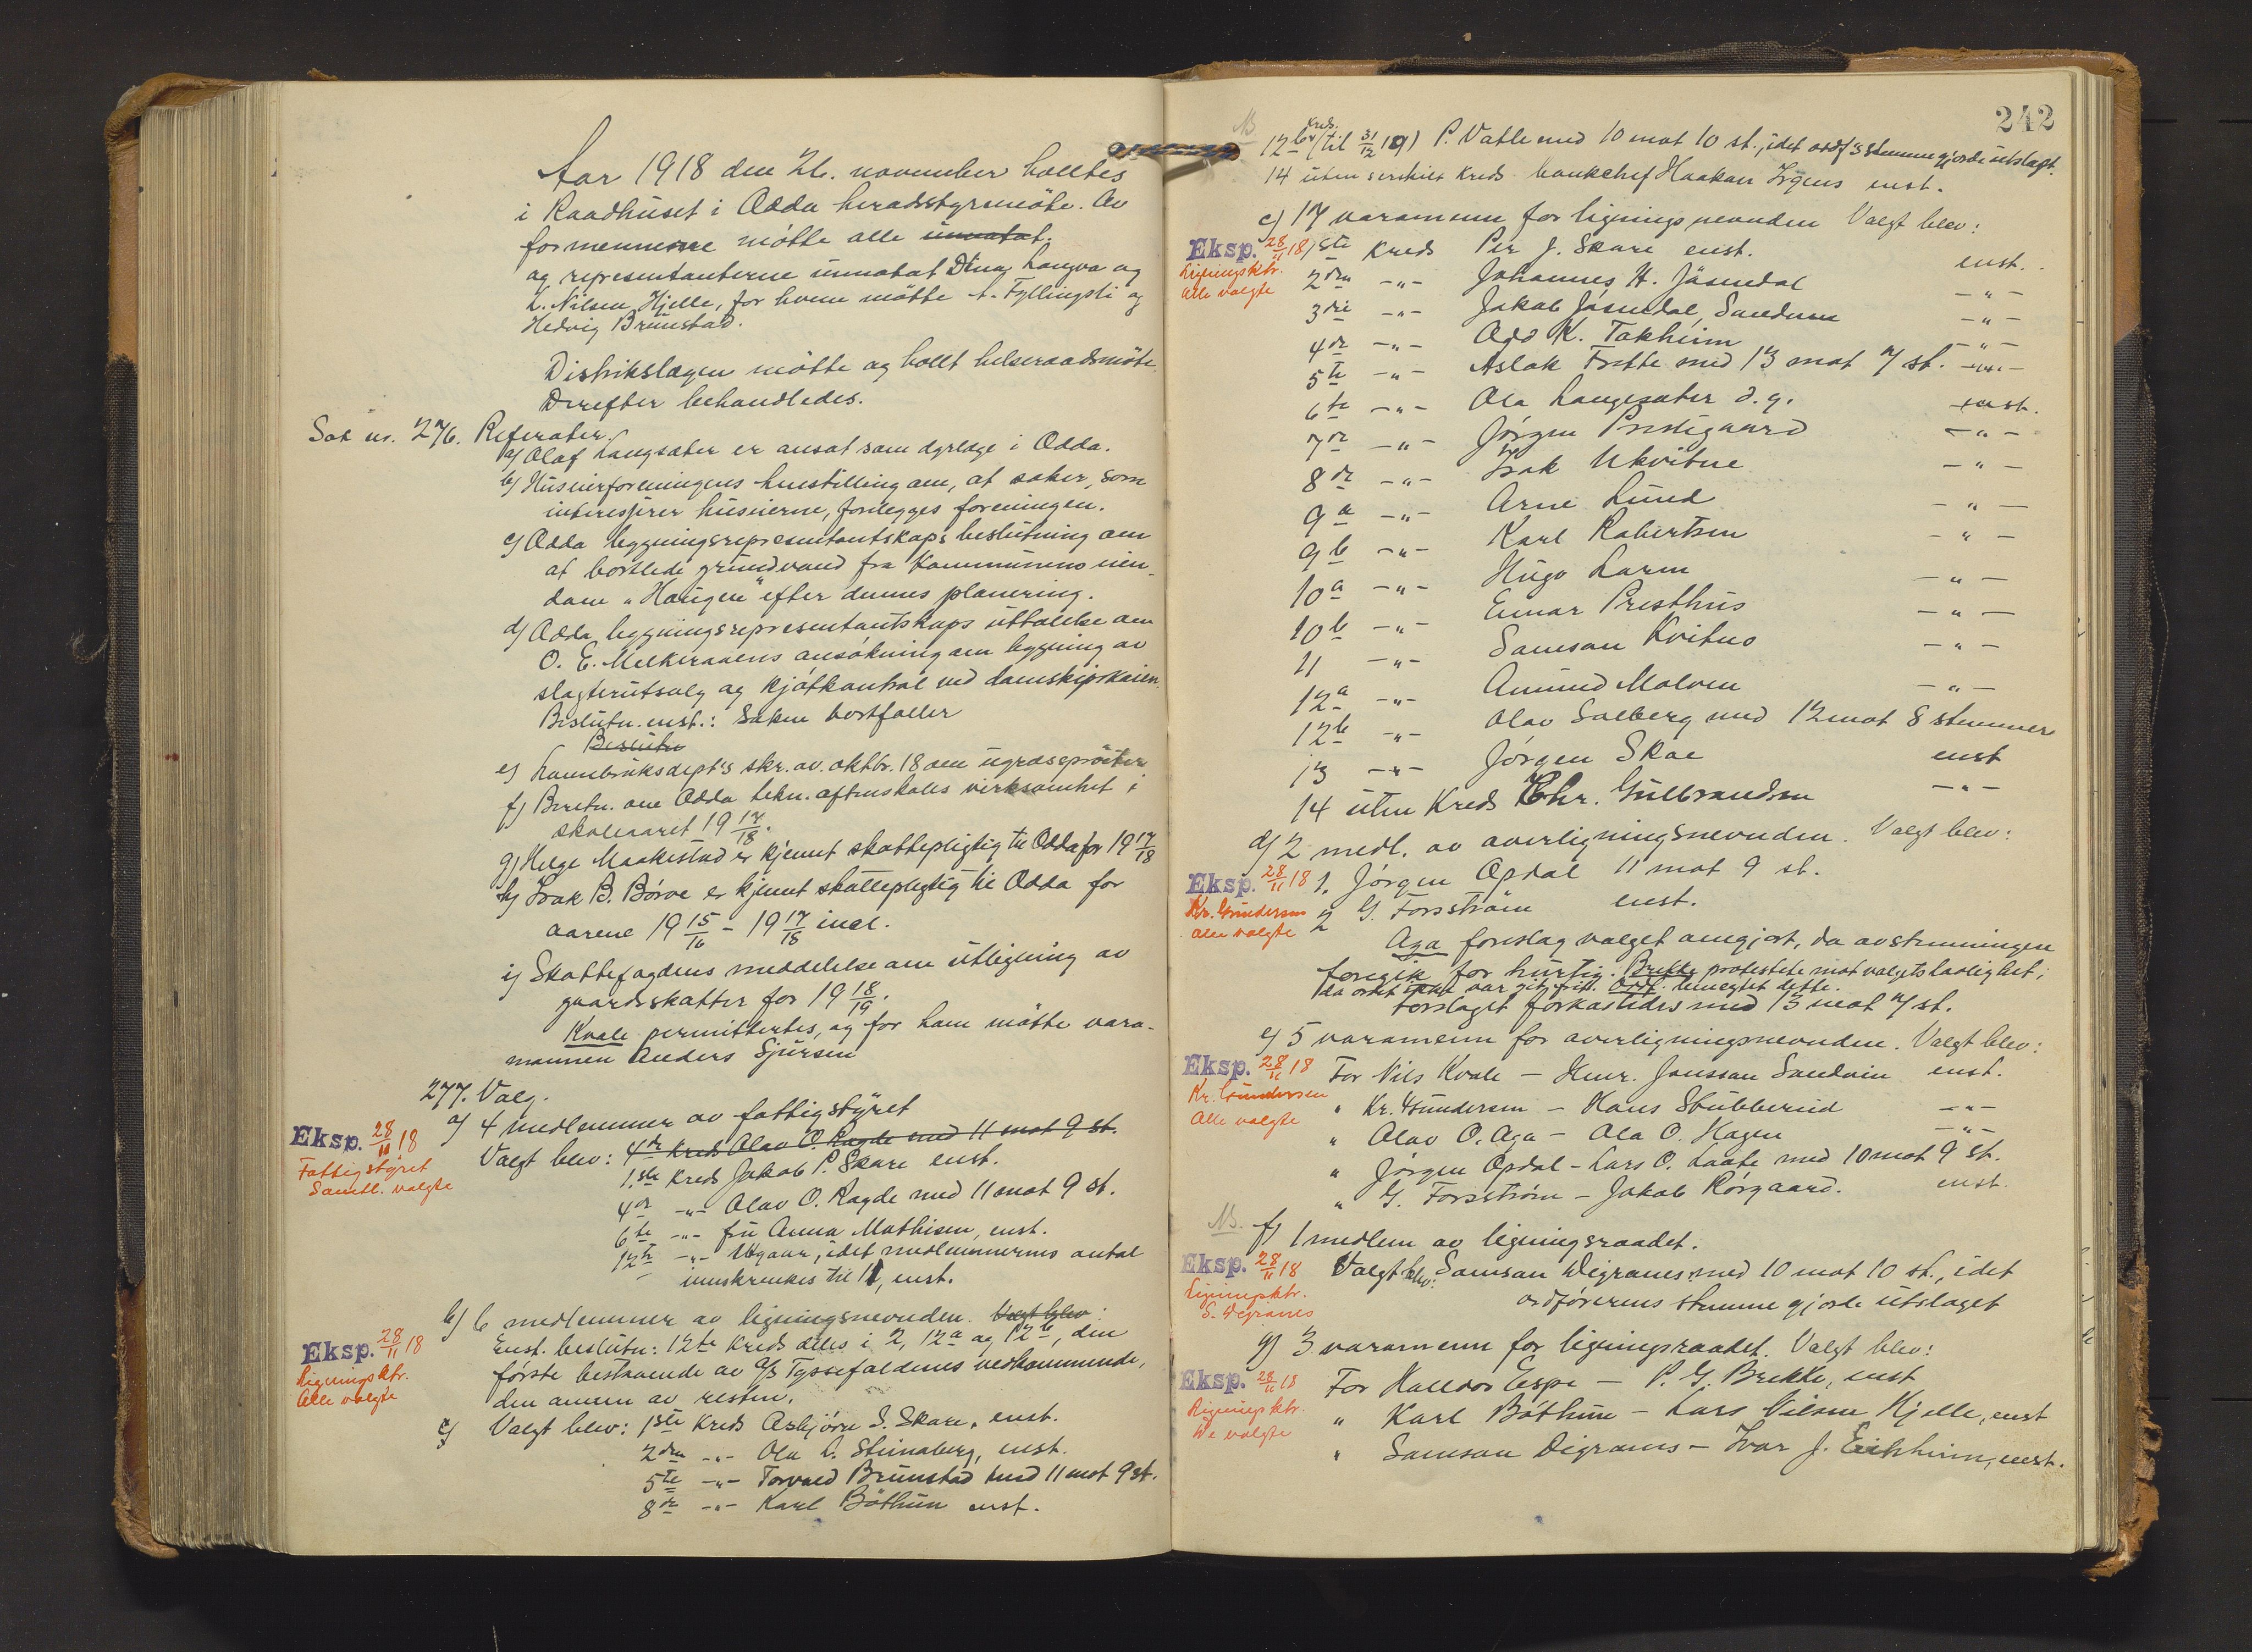 Aar 1918 den 26. november holdtes
i Raadhuset i Odda heradsstyremøte. Av
formennerne møtte alle unnatat.
og representanterne unnatat Dina Langva og
L. Nilsen Hjelle, for hvem møtte A. Fyllingsli og
Hedvig Brunstad.
Distrikslægen møtte og hollt helseraadsmøte.
Derefter behandledes.
Sak nr. 276. Referater.
a) Olaf Langsæter er ansat som dyrlæge i Odda.
b) Huseierforeningens henstilling om, at saker, som
interesserer huseierne, forelegges foreningen.
c) Odda bygningsrepresentantskaps beslutning om
at bortlede grundvand fra kommunens eien-
dom "Haugen" efter dennes planering.
d) Odda bygningsrepresentantskaps uttalelse om
O. E. Melkeraaens ansøkning om bygging av
slagterutsalg og kjøtkontrol ved damskipskaien.
Beslutn. enst.: Saken bortfaller
Beslutn
e) Lannbruksdept's skr. av. oktbr. 18 om ugræssprøiter
f) Beretn. om Odda tekn. aftenskoles virksomhet i
skoleaaret 19 17/18.
g) Helge Maakestad er kjennt skattepligtig til Odda for 19 17/18
h) Isak B. Børve er kjennt skattepligtig til Odda for
aarene 19 15/16 - 19 17/18 incl.
i) Skattefogdens meddelelse om utligning av
gaardsskatter for 19 18/19.
Kvale permittertes, og for ham møtte vara-
mannen Anders Sjursen
277. Valg.
a) 4 medlemmer av fattigstyret
Eksp. 28/11 18
Fattigstyret
Samtl. valgte
Valgt blev: 4de kreds Olav O. Ragde med 11 mot 9 st.
1.ste kreds Jakob P. Skare enst.
4de -"- Olav O. Ragde med 11 mot 9 st.
6te -"- fru Anna Mathisen, enst.
12te -"- Utgaar, idet medlemmernes antal
innskrenkes til 11, enst.
b) 6 medlemmer av ligningsnevnden. Valgt blev:
Eksp. 28/11 18
Ligningsktr.
Alle valgte
Enst. beslutn: 12te kreds deles i 2, 12a og 12b, den
første bestaaende av A/S Tyssefaldenes vedkommende,
den annen av resten.
c) Valgt blev: 1ste kreds Asbjørn S. Skare, enst.
2den -"- Ola L. Steinaberg, enst.
5te -"- Torvald Brunstad med 11 mot 9 st.
8de -"- Karl Bøthun enst.
242
NB
12b kreds. (til 31/12 19) P. Vatle med 10 mot 10 st., idet ordf's stemme gjorde utslaget.
14 uten serskilt kreds bankchef Haakon Irgens enst.
c) 17 varamenn for ligningsnevnden Valgt blev:
Eksp. 28/11 18
Ligningsktr.
Alle valgte
1ste kreds Per J. Skare enst.
2den -"- Johannes H. Jøsendal enst.
3die -"- Jakob Jøsendal, Sandven -"-
4de -"- Odd K. Tokheim -"-
5te -"- Aslak Frette med 13 mot 7 st. -"-
6te -"- Ola Langesæter d.y. -"-
7de -"- Jørgen Prestegaard enst.
8de -"- Isak Ukvitne -"-
9a -"- Arne Lund -"-
9b -"- Karl Robertsen -"-
10a -"- Hugo Larm -"-
10b -"- Einar Presthus -"-
11 -"- Samson Kvitno -"-
12a -"- Amund Malven -"-
12b -"- Olav Solberg med 12 mot 8 stemmer
13 -"- Jørgen Skoe enst
14 uten kreds Chr. Gulbrandsen -"-
d) 2 medl. av overligningsnevnden. Valgt blev:
Eksp. 28/11 18
Kr. Gundersen
Alle valgte
1. Jørgen Opdal 11 mot 9 st.
2 G. Forsström enst.
Aga foreslog valget omgjort, da avstemningen
foregik for hurtig. Brekke protesterte mot valgets lovlighet,
da ordet var git frit. Ordf. benegtet dette.
Forslaget forkastedes med 13 mot 7 st.
e) 5 varamenn for overligningsnevnden. Valgt blev:
Eksp. 28/11 18
Kr. Gundersen
Alle valgte
For Nils Kvale - Henr. Jonsson Sandvin enst.
" Kr. Gundersen - Hans Stubberud -"-
" Olav O. Aga - Ola O. Hagen -"-
" Jørgen Opdal - Lars O. Laate med 10 mot 9 st.
" G. Forsström - Jakob Rørgaard. enst.
NB. f) 1 medlem av ligningsraadet.
Eksp. 28/11 18
Ligningsktr.
S. Digranes
Valgt blev: Samson Digranes med 10 mot 10 st., idet
ordførerens stemme gjorde utslaget
g) 3 varamenn for ligningsraadet. Valgt blev:
Eksp. 28/11 18
Ligningsktr.
De valgte
For Halldor Espe - P. G. Brekke, enst
" Karl Bøthun - Lars Nilsen Hjelle, enst
" Samson Digranes - Ivar J. Eitrheim, enst.